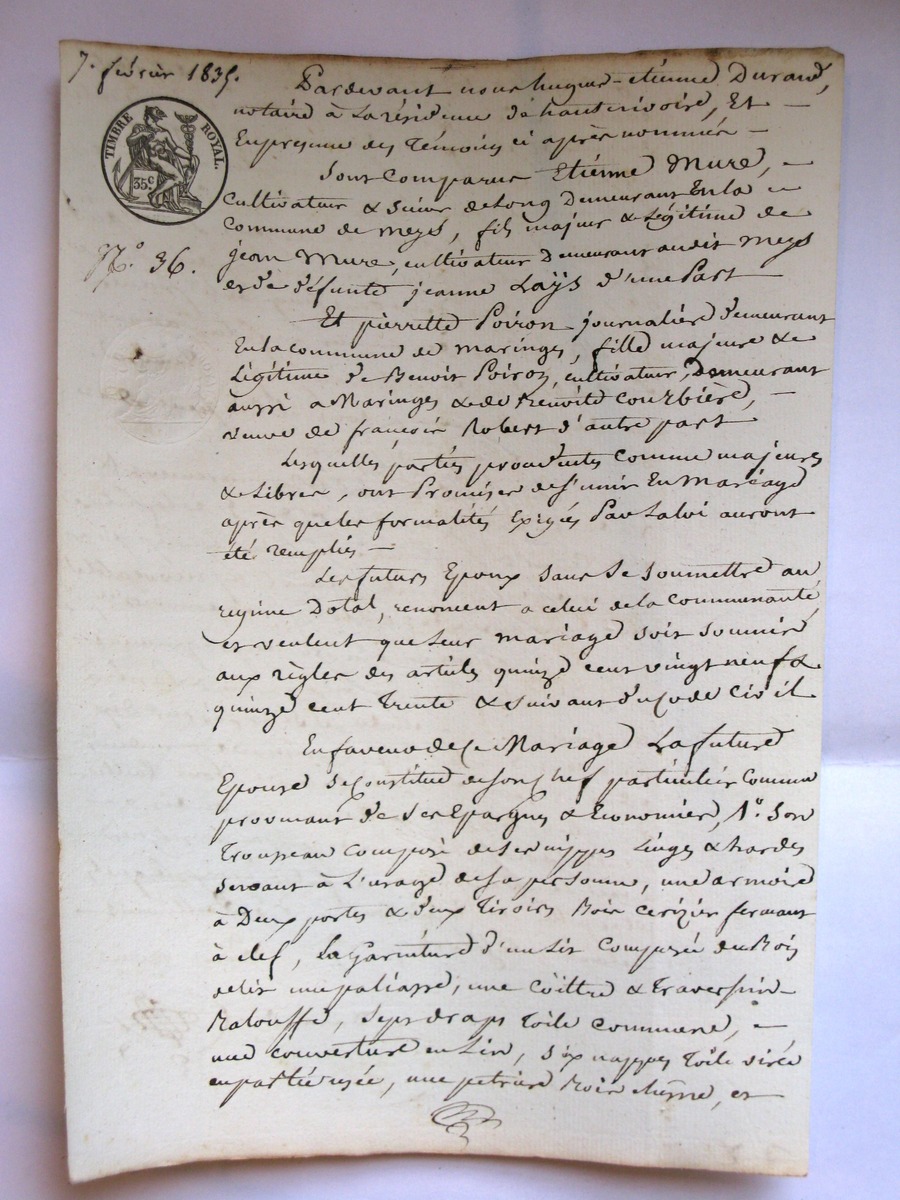 7. février 1835.
TIMBRE ROYAL.
35.c
N.o 36.
Pardevant nous hugues-etiénne Durand,
notaire à La résidence de hauterivoire, Et –
En présence des Témoins ci après nommés –
Sont Comparus Etiénne Mure, –
Cultivateur & Scieur de Long Demeurant En la –
Commune de meys, fils majeur & Légitime de
jean Mure, cultivateur Demeurant audit meys
et de défunte jeanne Laÿs d'une Part
Et pierrette Poiron journaliere demeurant
En la commune de maringes, fille majeure &
Légitime de Benoit Poiron, cultivateur, demeurant
aussi a Maringes & de Benoite Courbière, –
veuve de françois Robert d'autre part
Lesquelles parties procédantes comme majeures
& Libres, ont Promises de s'unir En Mariage
après que les formalités Exigées Par La loi auront
été remplies –
Les futurs Epoux sans Se Soumettre au
regime Dotal, renoncent a celui de la Communauté
et veulent que Leur mariage soit soumis
aux règles des articles quinze cent vingt neuf &
quinze cent Trente & suivant du Code Civil
En faveur de Ce Mariage La future
Epouse Se Constitue de Son Chef particulier Comme
provenant de Ses Epargnes & Economies, 1.o Son
Trousseau composé de Ses nippes Linges & hardes
servant à L'usage de Sa personne, une armoire
à Deux portes & deux Tiroirs Bois cerizier fermant
à clef, La Garniture d'un Lit Composée du Bois
de lit une paliasse, une Coittre & Traversin –
Balouffe, Sept draps Toile commune, –
une couverture en Lin, Six nappes Toile
en partie usée, une petriere Bois chêne, et